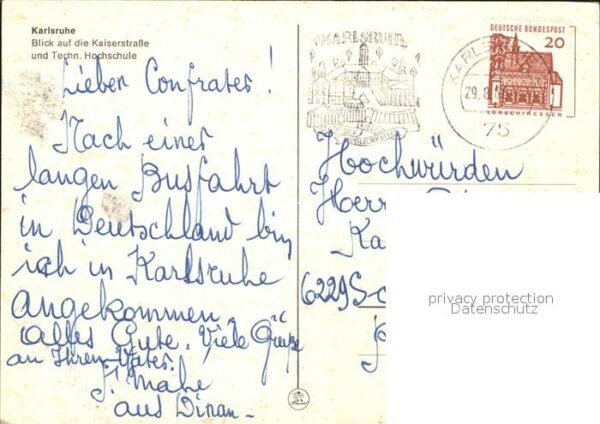 Karlsruhe
Blick auf die Kaiserstraße
und Techn. Hochschule
Lieber Confrater!
Nach einer
langen Busfahrt
in Deutschland bin
ich in Karlsruhe
angekommen.
Alles Gute. Viele Grüße
an Ihren Vater.
J. Mahe
aus Dinan
KARLSRUHE
DEUTSCHE BUNDESPOST
20
LORSCH/HESSEN
KARLS
29.8
75
Hochwürden
Herr
Ka
6229 S
privacy protection
Datenschutz